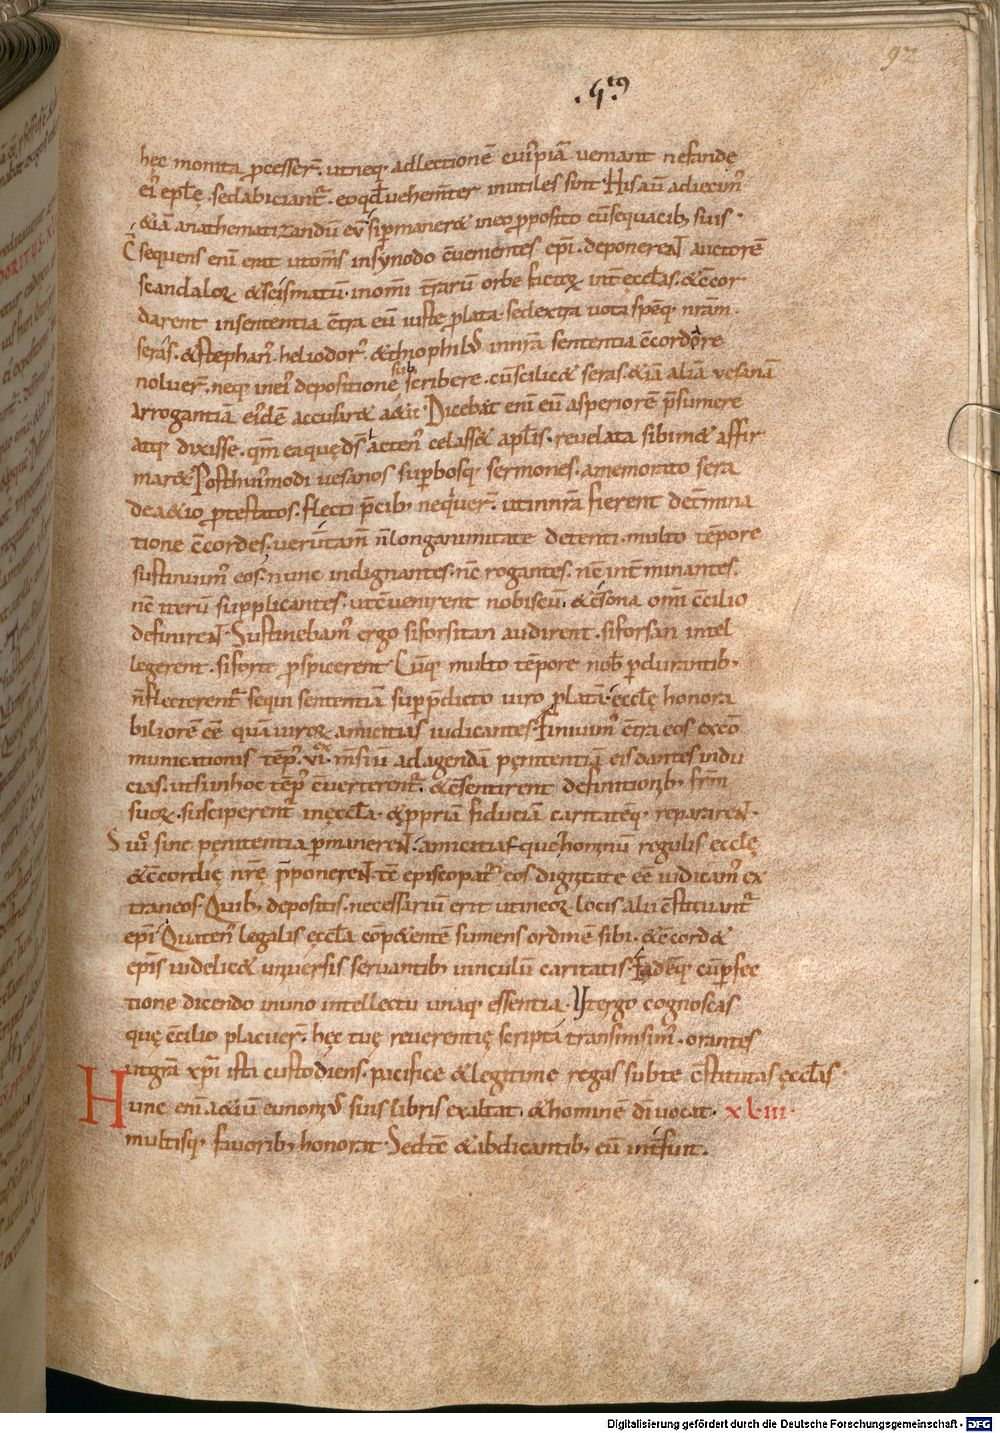 92
.5tꝰ
hec monita p̱cesser̄. utneq; adlectionē cuiꝰpiā ueniant nefandę
eiꝰ epl̄ę. sedabiciant᷑. eoqd̄ uehem̄ter inutiles sint. Hisaū adiecimꝰ
&iā anathematizandū eū sip̱maner& ineo p̱posito cūsequacib; suis.
C̄sequens enī erit utom̄s insynodo c̄uenientes ep̄i. deponereNT auctorē
scandaloꝝ &scismatū. inom̄i t̄rarū orbe factoꝝ int̄ eccl̄as. &c̄cor
darent insententia c̄tra eū iuste p̱lata. sedextra uota spēq; nr̄am.
seras. &stephanꝰ. heliodorꝰ. &thiophilꝰ innr̄a sententia c̄cordare
noluer̄. neq; ineiꝰ depositionē subscribere. cūscilic& seras. &iā aliā uesaniā
arrogantiā eiꝰdē accusar& a&ii. Dicebat enī eū asperiorē p̄sumere
atq; dixisse. qm̄ eaquę ds̄ actenꝰ celass& apl̄is. reuelata sibim& affir
mar& Posthuiꝰmodi uesanos sup̱bosq; sermones. amemorato sera
dea&io p̱testatos. flecti p̄cib; nequiuer̄. utinnr̄a fierent det̄mina
tione c̄cordes. uerūtam̄ n̄longanimitate detenti. multo tēpore
sustinuimꝰ eos. nunc indignantes. nc̄ rogantes. nc̄ int̄minantes.
nc̄ iterū supplicantes. utc̄uenirent nobiscū. &c̄sona om̄i c̄cilio
definireNT. Sustinebamꝰ ergo siforsitan audirent. siforsan intel
legerent. siforte p̱spicerent. Cūq; multo tēpore nob̄ p̱durantib;
n̄flecterent᷑ sequi sententiā sup̱ p̄dicto uiro p̱latā. eccl̄ę honora
biliorē eē quā uiroꝝ amicitias iudicantes. finiuimꝰ c̄tra eos excō
municationis tēpꝰ. vi. ex m̄siū adagendā pęnitentiā eis dantes indu
cias. utsiinhoc tēpꝰ c̄uerterent᷑. &c̄sentirent definitionib; fr̄m
suoꝝ. susciperent᷑ ineccl̄a. &p̱priā fiduciā caritatēq; reparareNT.
Siuꝰo sine pęnitentia p̱maneren̄NT. amicitiasque hominū regulis eccl̄ę
&c̄cordię nr̄ę p̄ponereNT. tc̄ episcopatꝰ eos dignitate eē iudicamꝰ ex
traneos. Quib; depositis. necessariū erit utineoꝝ locis alii c̄stituant᷑
ep̄i. Quatenꝰ legalis eccl̄a cōp&entē sumens ordinē sibi. &c̄cord&
ep̄is uidelic& uniuersis seruantib; uinculū caritatis. Eadēq; cūp̱fec
tione dicendo inuno intellectu unaq; essentia. Ut ergo cognoscas
quę c̄cilio placuer̄. hęc tuę reuerentię scripta transmisimꝰ. orantes
utgr̄a xp̄i ista custodiens. pacifice &legitime regas subte c̄stitutas eccl̄as.
Hunc enī a&iū eunomꝰ suis libris exaltat. &hominē dī uocat. xliii.
multisq; fauorib; honorat. Sedtc̄ &abdicantib; eū int̄fuit.
Digitalisierung gefördert durch die Deutsche Forschungsgemeinschaft - DFG